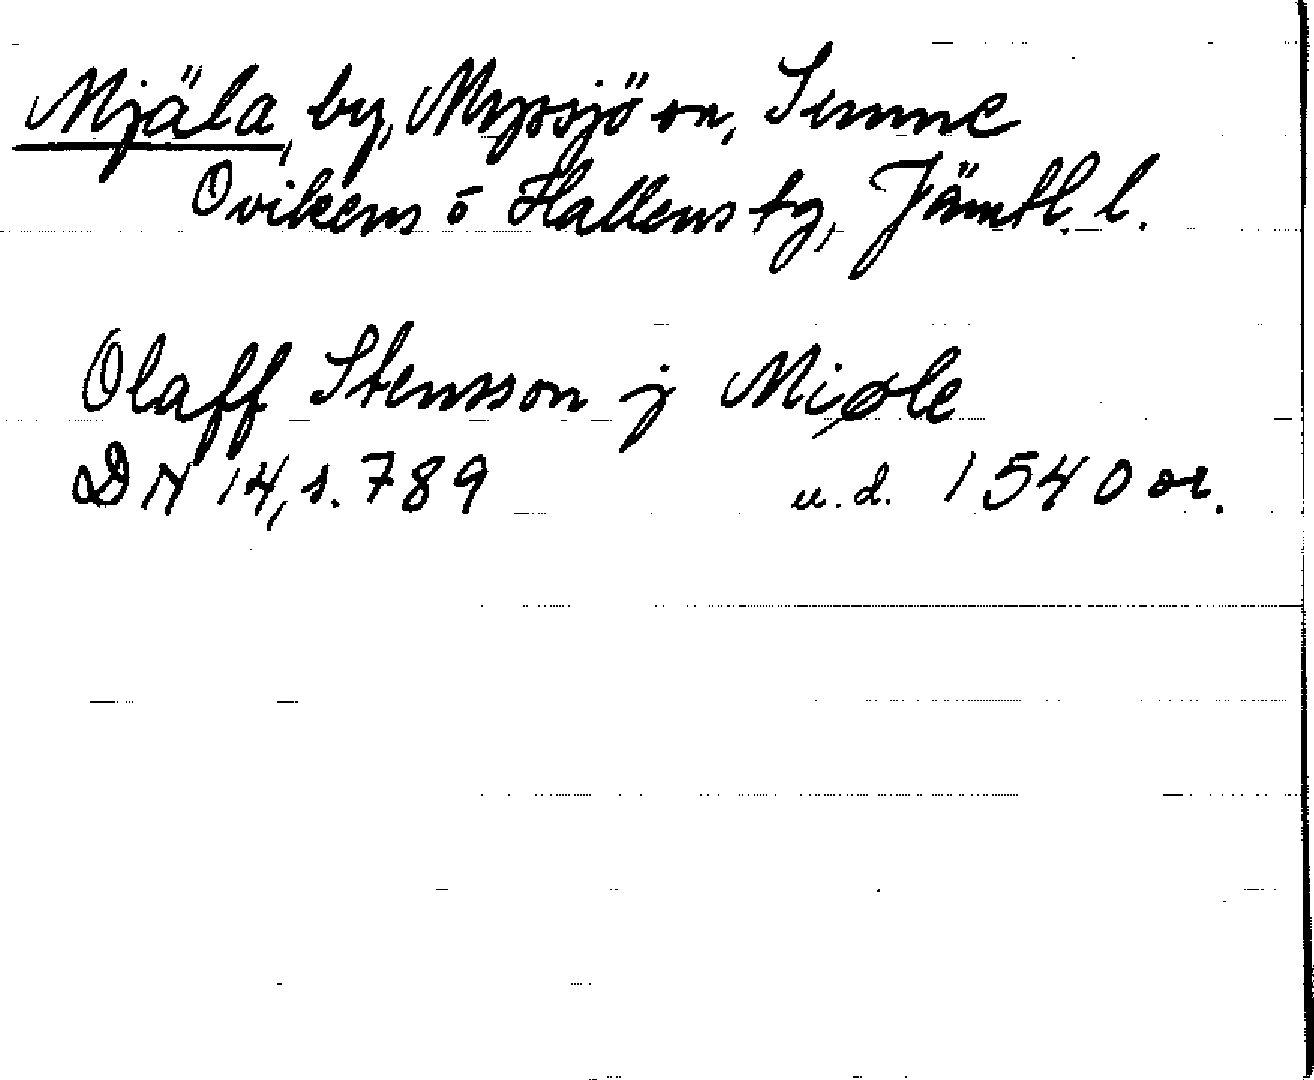 Mjäla, by, Myssjö sn, Sunne
Ovikens o Hallens tg, Jämtl. l.
Olaff Stensson j Miøle
DN 14, s. 789 u.d. 1540 or.